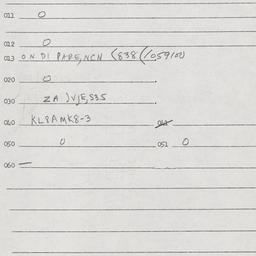 011 O
012 O
013 ON DI PARE,NCN (838(/059100)
020 O
030 ZA )VJE,S35
040 KL8AMK8-3 041
050 O 051 O
060 —